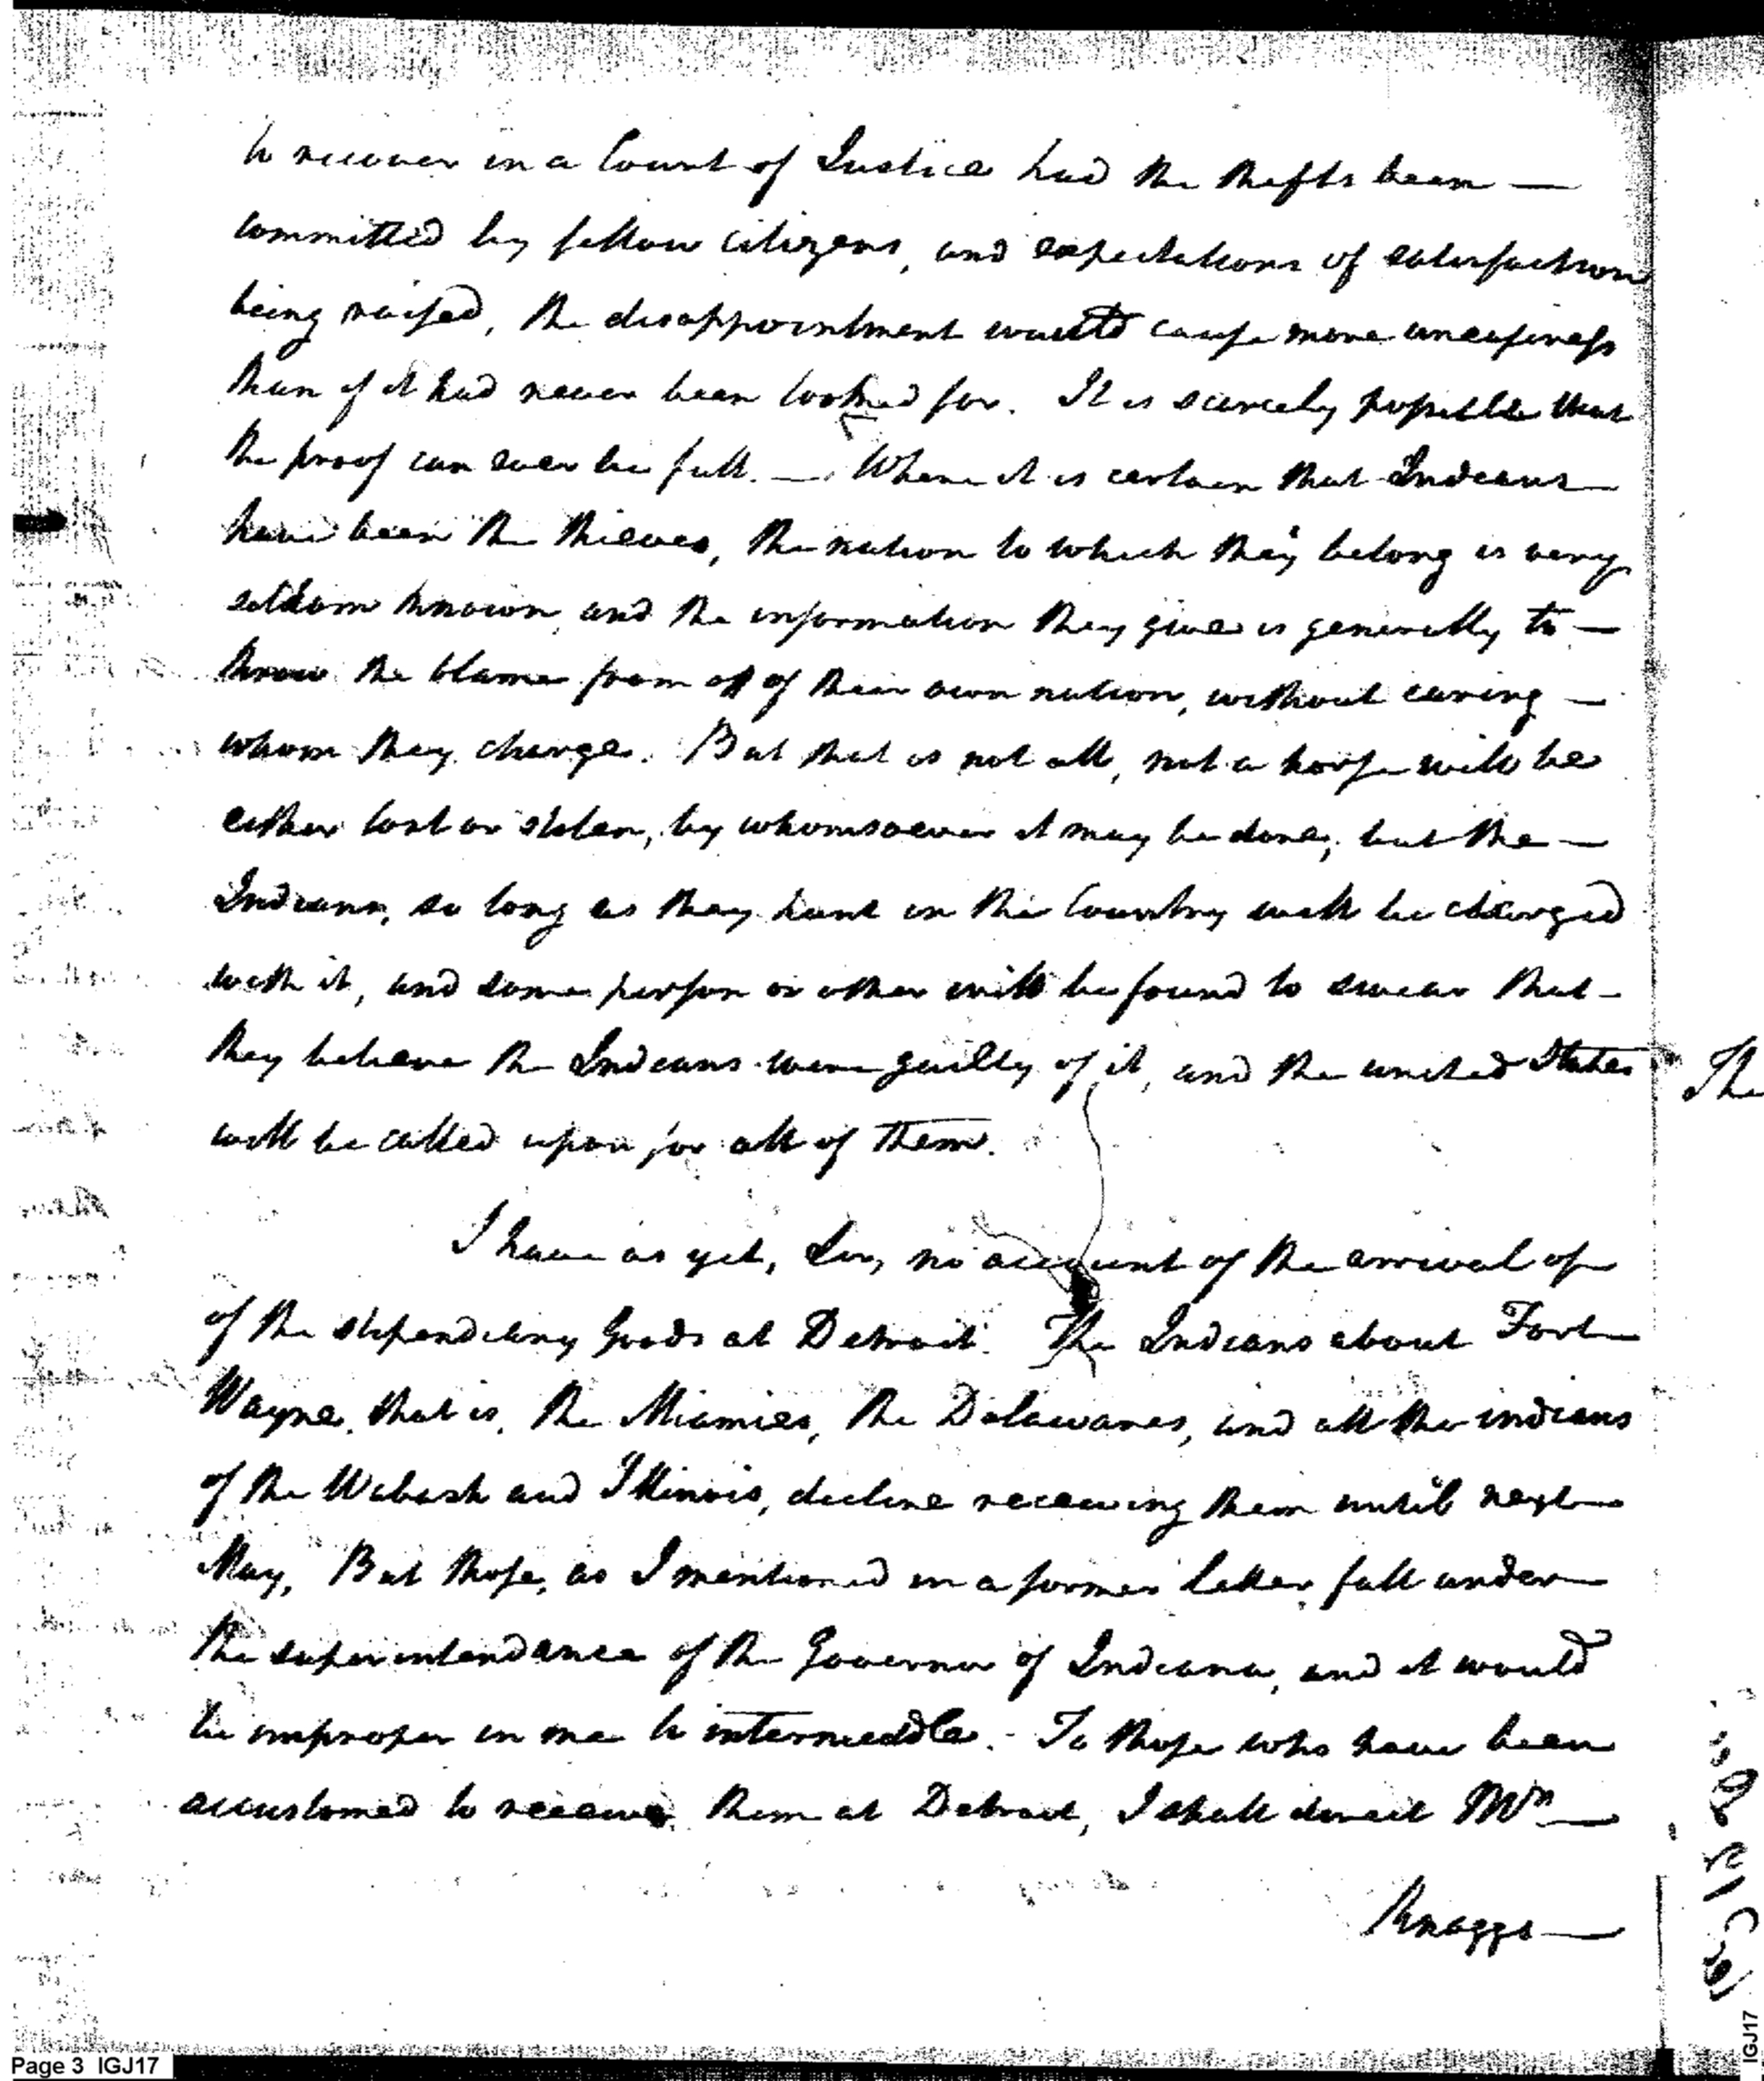 to recover in a Court of Justice had the thefts been —
committed by fellow citizens, and expectations of satisfaction
being raised, the disappointment would cause more uneasiness
than if it had never been looked for. It is scarcely possible that
the proof can ever be full. — Where it is certain that Indians
have been the thieves, the nation to which they belong is very
seldom known, and the information they give is generally to —
throw the blame from off of their own nation, without caring —
whom they charge. But that is not all, not a horse will be
either lost or stolen, by whomsoever it may be done, but the —
Indians, so long as they hunt in the Country will be charged
with it, and some person or other will be found to swear that —
they believe the Indians were guilty of it, and the united States
will be called upon for all of them.
I have as yet, Sir, no account of the arrival of
of the stipendiary Goods at Detroit. The Indians about Fort
Wayne, that is, the Miamies, the Delawares, and all the indians
of the Wabash and Illinois, decline receiving them until next
May, But those, as I mentioned in a former letter, fall under
the superintendance of the Governor of Indiana, and it would
be improper in me to intermeddle. - To those who have been
accustomed to receive them at Detroit, I shall direct Mr —
Knaggs —
The
Page 3 IGJ17
IGJ17